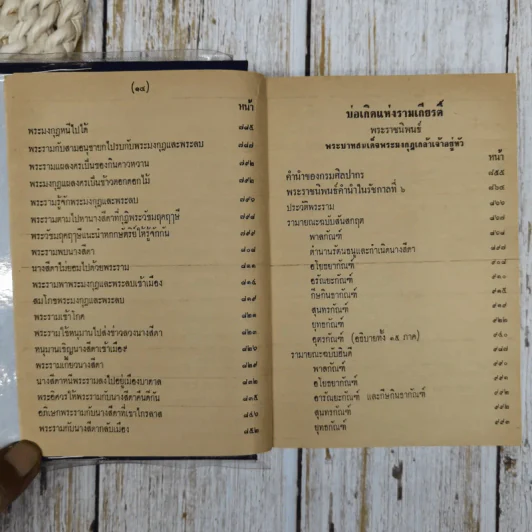 (๑๔)
หน้า
พระมงกุฎหนีไปได้ ๗๘๕
พระรามกับสามอนุชายกไปรบกับพระมงกุฎและพระลบ ๗๘๗
พระรามแผลงศรเป็นของกินคาวหวาน ๗๙๒
พระมงกุฎแผลงศรเป็นข้าวตอกดอกไม้ ๗๙๒
พระรามรู้จักพระมงกุฎและพระลบ ๗๙๖
พระรามตามไปหานางสีดาที่กุฎิพระวัชมฤคฤๅษี ๗๙๘
พระวัชมฤคฤๅษีแนะนำหกกษัตริย์ให้รู้จักกัน ๗๙๙
พระรามพบนางสีดา ๘๐๘
นางสีดาไม่ยอมไปด้วยพระราม ๘๑๑
พระรามพาพระมงกุฎและพระลบเข้าเมือง ๘๑๔
สมโภชพระมงกุฎและพระลบ ๘๑๙
พระรามเข้าโกศ ๘๒๑
พระรามใช้หนุมานไปส่งข่าวลวงนางสีดา ๘๒๓
หนุมานเชิญนางสีดาเข้าเมือง ๘๒๖
พระรามเกี้ยวนางสีดา ๘๒๙
นางสีดาหนีพระรามลงไปอยู่เมืองบาดาล ๘๓๒
พระอิศวรให้พระรามกับนางสีดาคืนดีกัน ๘๓๕
อภิเษกพระรามกับนางสีดาที่เขาไกรลาส ๘๔๖
พระรามกับนางสีดากลับเมือง ๘๕๒
บ่อเกิดแห่งรามเกียรติ์
พระราชนิพนธ์
พระบาทสมเด็จพระมงกุฎเกล้าเจ้าอยู่หัว
หน้า
คำนำของกรมศิลปากร ๘๕๕
พระราชนิพนธ์คำนำในรัชกาลที่ ๖ ๘๖๔
ประวัติพระราม ๘๖๖
รามายณะฉบับสันสกฤต ๘๖๗
พาลกัณฑ์ ๘๖๗
ตำนานรัตนธนูและกำเนิดนางสีดา
อโยธยากัณฑ์ ๙๐๘
อรัณยะกัณฑ์ ๙๑๐
กีษกินธากัณฑ์ ๙๑๕
สุนทรกัณฑ์ ๙๑๙
ยุทธกัณฑ์ ๙๒๒
อุตรกัณฑ์ (อธิบายทั้ง ๑๕ ภาค)
รามายณะฉบับฮินดี ๙๘๗
พาลกัณฑ์
อโยธยากัณฑ์
อารัณยะกัณฑ์ และกีษกินธากัณฑ์ ๙๙๒
สุนทรกัณฑ์ ๙๙๒
ยุทธกัณฑ์ ๙๙๓